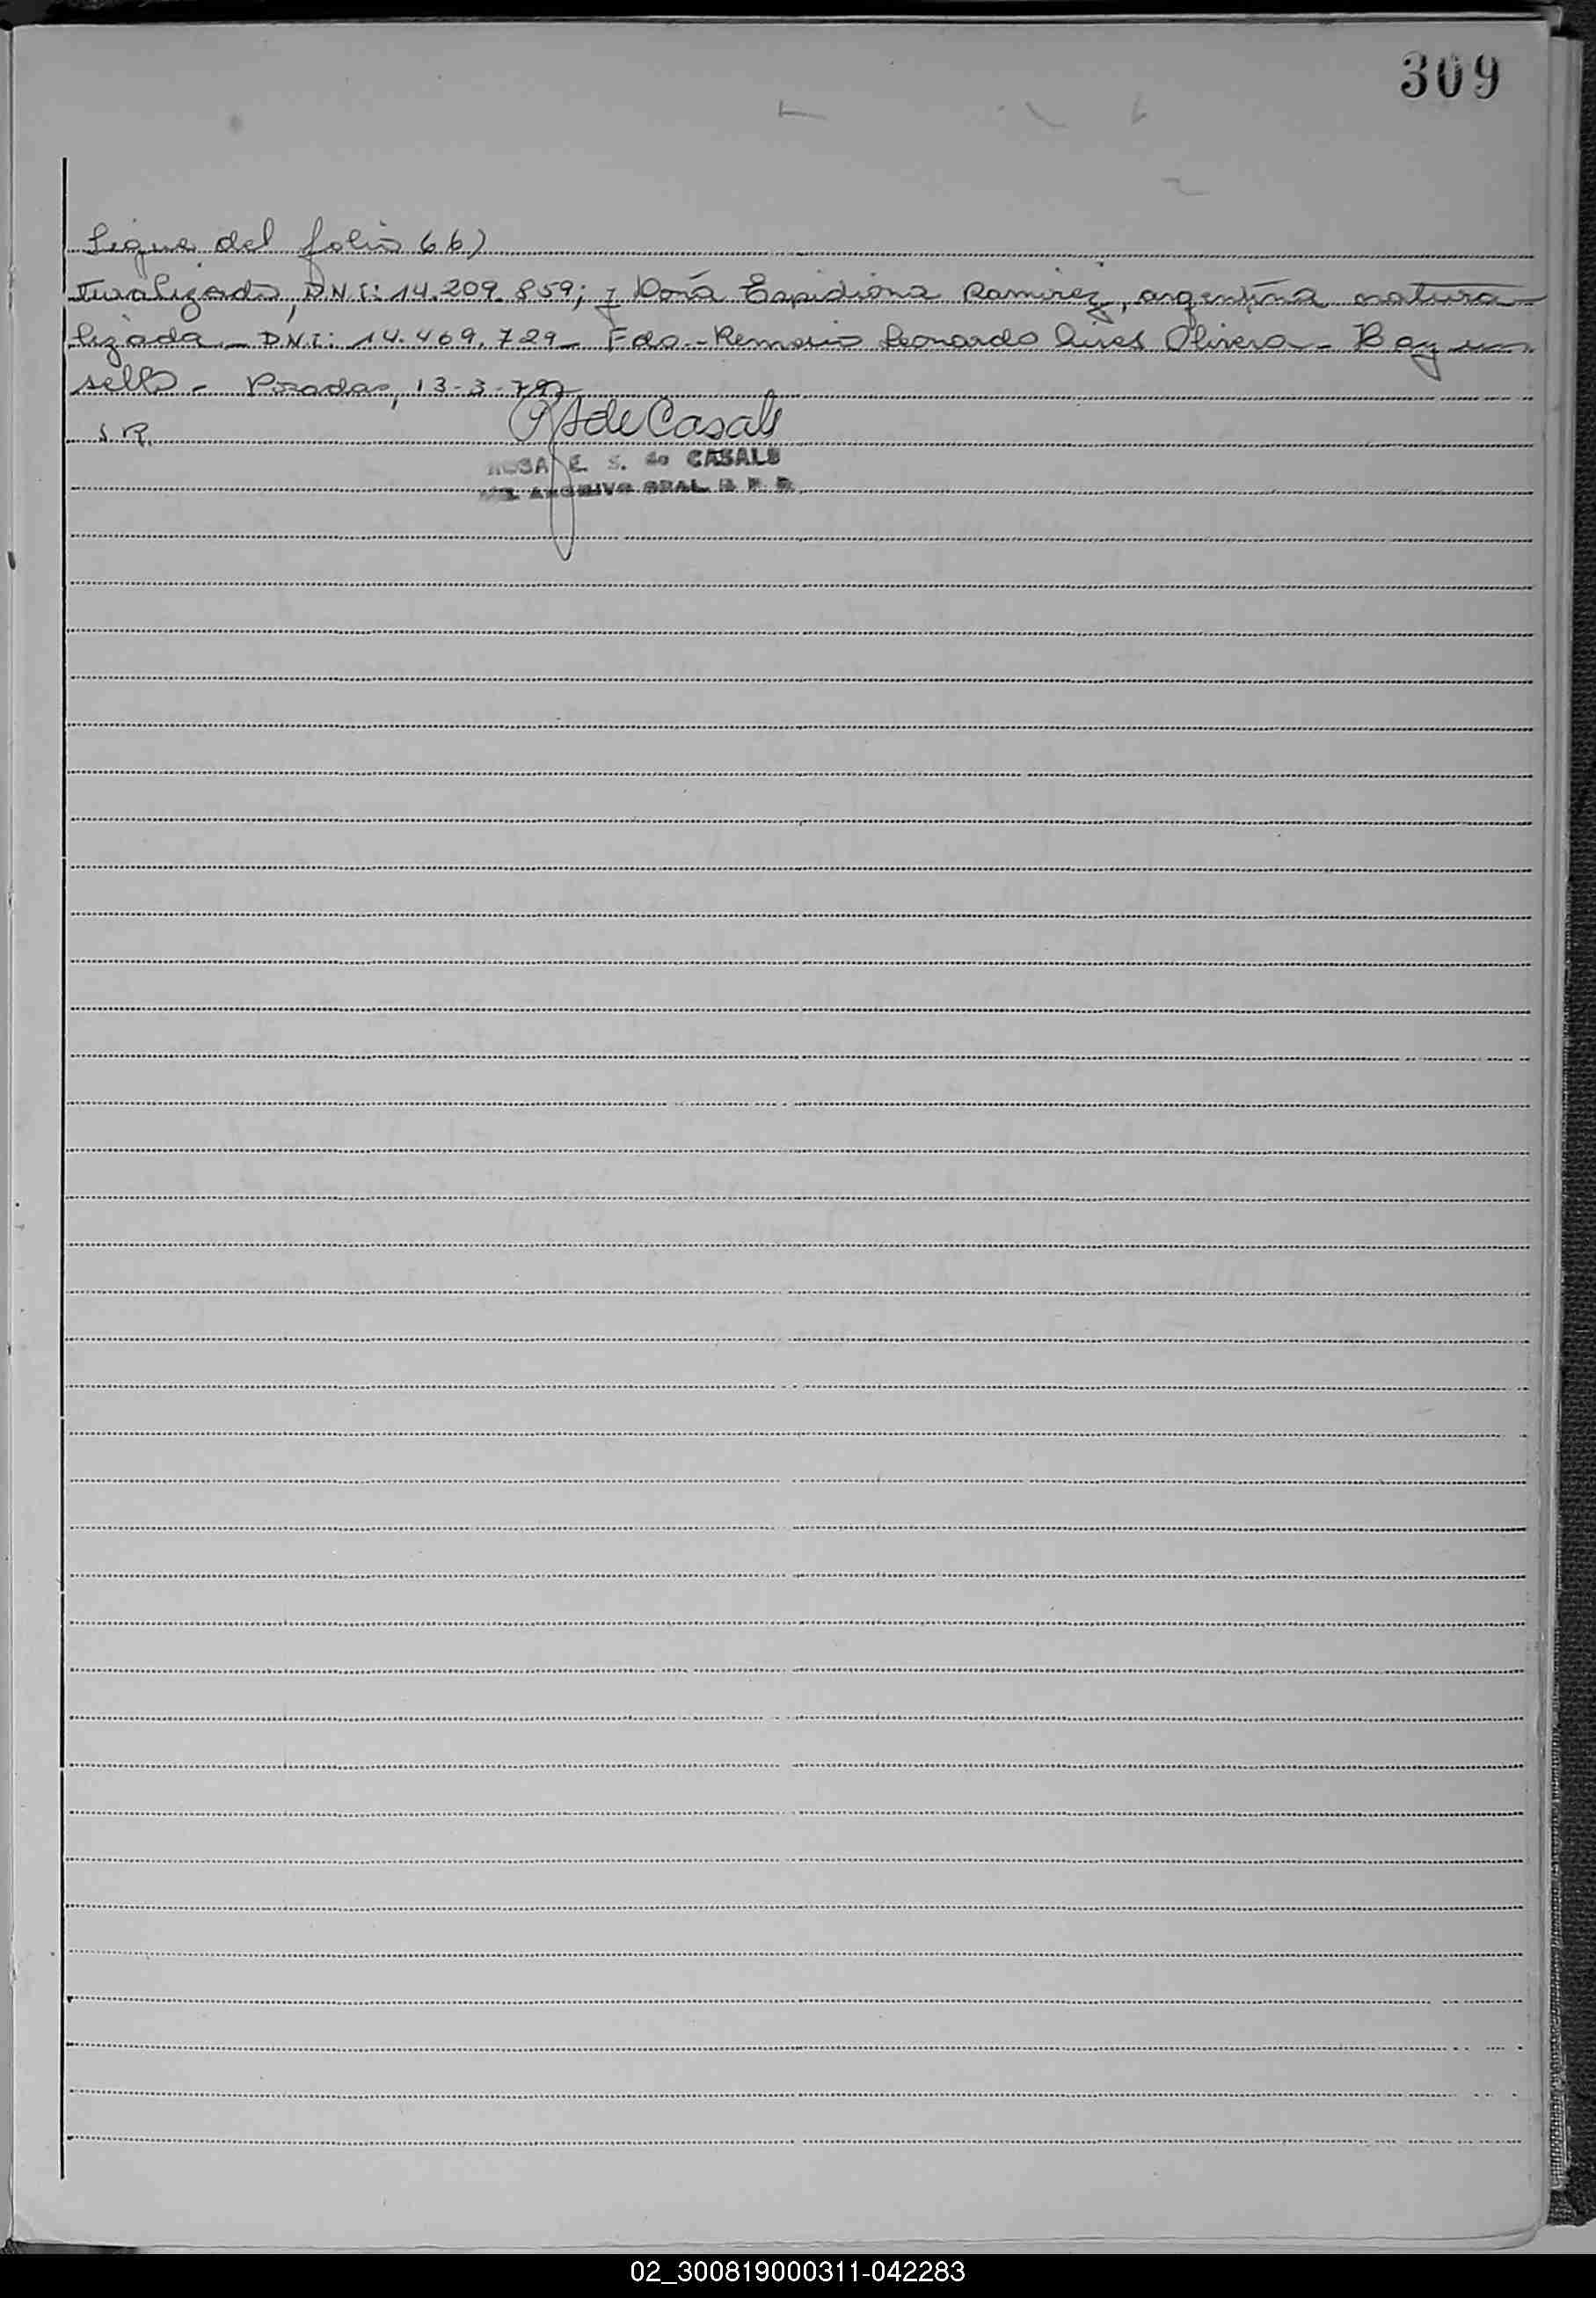 309
Sigue del folio 66)
turalizado, DNI: 14.209.859; y Doña Espidiona Ramirez, argentina natura-
lizada.- DNI: 14.469.729- Fdo.- Remario Leonardo Aires Olivera- Hay un
sello- Posadas, 13-3-79
S R.
de Casals
ROSA E. S. de CASALS
ARCHIVO GRAL. R P. P.
02_300819000311-042283